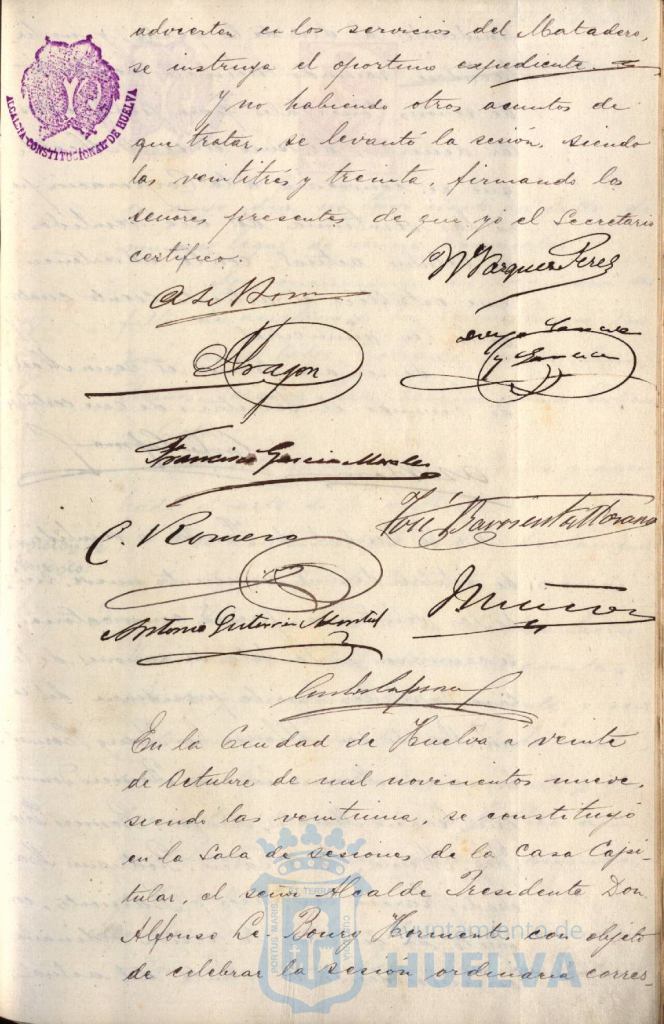 advierten en los servicios del Matadero,
se instruya el oportuno expediente.
Y no habiendo otros asuntos de
que tratar, se levantó la sesión, siendo
las veintitrés y treinta, firmando los
señores presentes de que yo el Secretario
certifico.
ALCALDIA CONSTITUCIONAL DE HUELVA
Vazquez Perez
Aragon
y
Francisco Garcia Morales
C. Romero
José
Antonio Gutierrez Montiel
Muñoz
En la Ciudad de Huelva á veinte
de Octubre de mil novecientos nueve,
siendo las veintiuna, se constituyó
en la Sala de sesiones de la Casa Capi-
tular, el señor Alcalde Presidente Don
Alfonso Le-Bourg Horment, con objeto
de celebrar la sesión ordinaria corres-
PORTUS MARIS ET TERRAE CUSTODIO
Ayuntamiento de
HUELVA